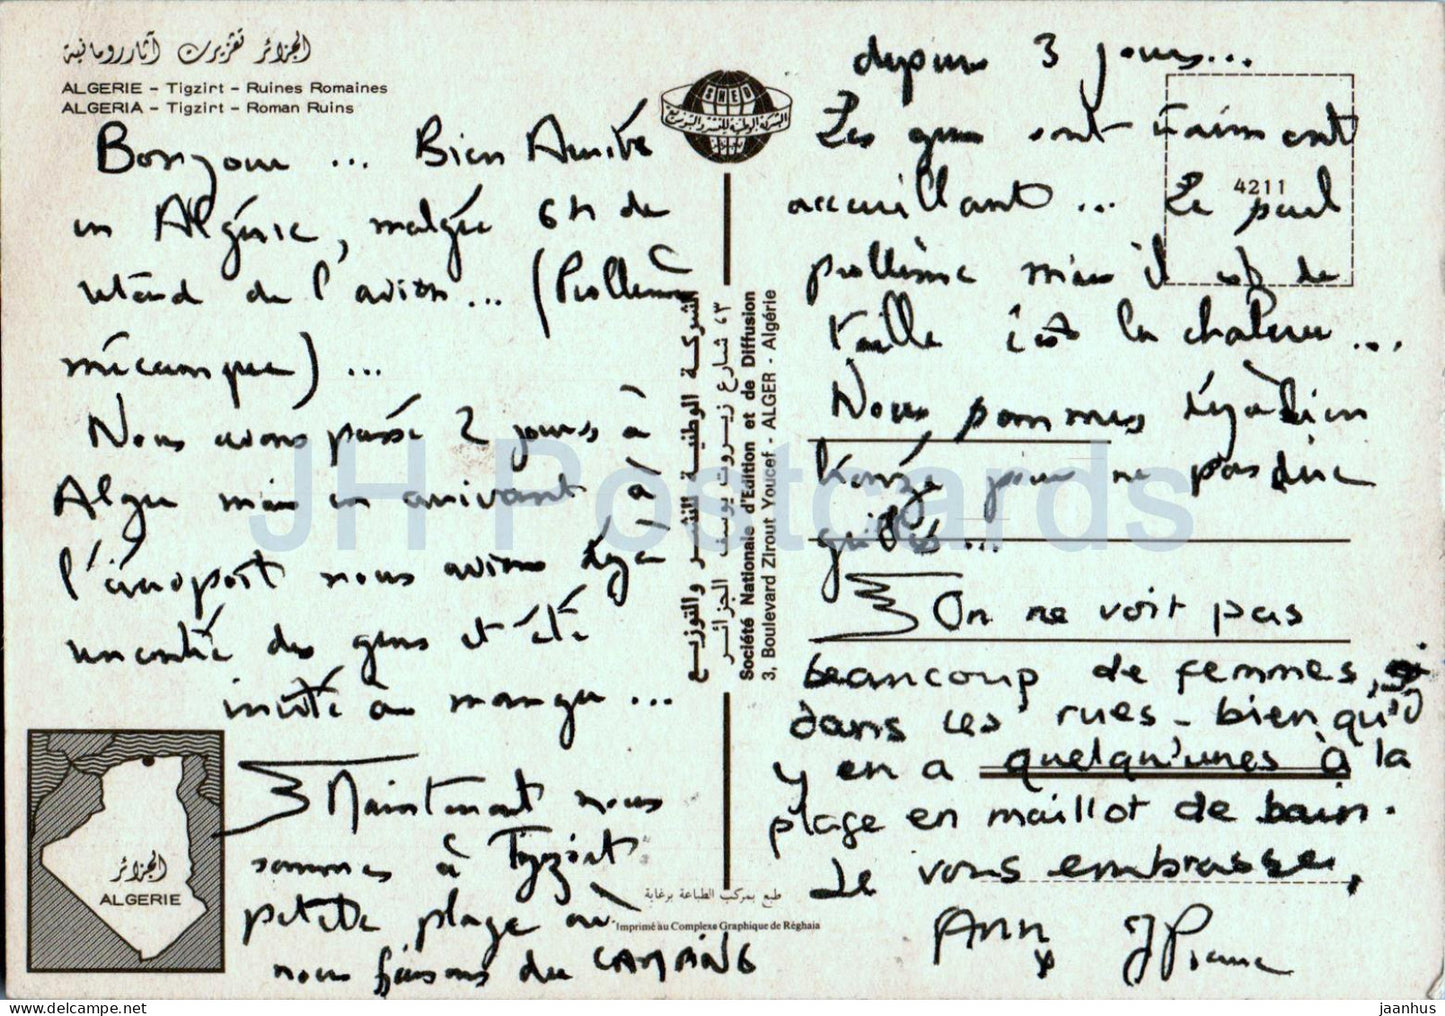 الجزائر تقزيرت آثار رومانية
ALGERIE – Tigzirt – Ruines Romaines
ALGERIA – Tigzirt – Roman Ruins
Bonjour ... Bien Arrivés
en Algérie, malgré 6H de
retard de l'avion... (Problème
mécanique) ...
Nous avons passé 2 jours à
Alger mais en arrivant à
l'aéroport nous avions déjà
rencontré des gens et été
invité à manger ...
Maintenant nous
sommes à Tigzirt
petite plage où
nous faisons du CAMPING
الجزائر
ALGERIE
SNED
الشركة الوطنية للنشر والتوزيع
الشركة الوطنية للنشر والتوزيع
٣ شارع زيروت يوسف الجزائر
Société Nationale d'Edition et de Diffusion
3, Boulevard Zirout Youcef - ALGER - Algérie
طبع بمركب الطباعة برغاية
Imprimé au Complexe Graphique de Réghaia
depuis 3 jours...
Les gens sont vraiment
accueillant ... Le seul
4211
problème mais il est de
taille c'est la chaleur ...
Nous sommes déjà bien
bronzé pour ne pas dire
grillés ...
On ne voit pas
beaucoup de femmes,
dans les rues - bien qu'il
y en a quelqu'unes à la
plage en maillot de bain.
Je vous embrasse,
Ann JPierre
JH Postcards
jaanhus
© www.delcampe.net